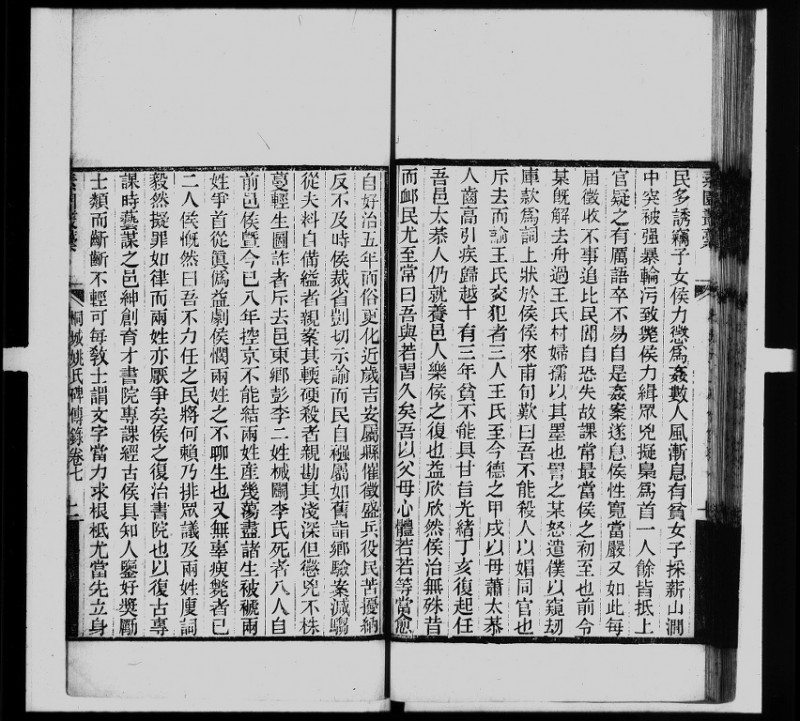 民多誘竊子女侯力懲爲姦數人風漸息有貧女子採薪山澗
中突被强暴輪污致斃侯力緝眾兇擬梟爲首一人餘皆抵上
官疑之有厲語卒不易自是姦案遂息侯性寬當嚴又如此每
届徵收不事追比民聞自恐失故課常最當侯之初至也前令
某旣解去舟過王氏村婦孺以其墨也詈之某怒遣僕以窺刧
庫款爲詞上狀於侯侯來甫旬歎曰吾不能殺人以媚同官也
斥去而諭王氏交犯者三人王氏至今德之甲戌以母蕭太恭
人齒高引疾歸越十有三年貧不能具甘旨光緒丁亥復起任
吾邑太恭人仍就養邑人樂侯之復也益欣欣然侯治無殊昔
而衈民尤至常曰吾與若習久矣吾以父母心體若若等當愈
自好治五年而俗更化近歲吉安屬縣催徵盛兵役民苦擾納
反不及時侯裁省剴切示諭而民自襁屬如舊詣鄉驗案減騶
從夫料自備縊者親案其輭硬殺者親勘其淺深但懲兇不株
蔓輕生圖詐者斥去邑東鄉彭李二姓械鬭李氏死者八人自
前邑侯曁今已八年控京不能結兩姓產幾蕩盡諸生被褫兩
姓爭首從眞僞益劇侯憫兩姓之不聊生也又無辜瘐斃者已
二人侯慨然曰吾不力任之民將何賴乃排眾議及兩姓廋詞
毅然擬罪如律而兩姓亦厭爭矣侯之復治書院也以復古專
課時藝謀之邑紳創育才書院專課經古侯具知人鑒好奬勵
士類而齗齗不輕可每敎士謂文字當力求根柢尤當先立身
桐城姚氏碑傳錄卷七
二